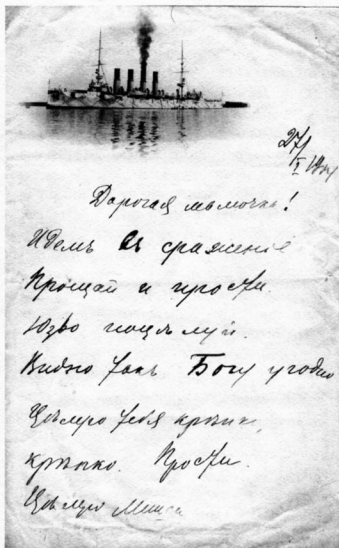 27/I 1904
Дорогая мамочка!
Идемъ въ сраженіе
Прощай и прости.
поцѣлуй.
Видно такъ Богу угодно
Цѣлую тебя крѣпко,
крѣпко. Прости.
Цѣлую Миша